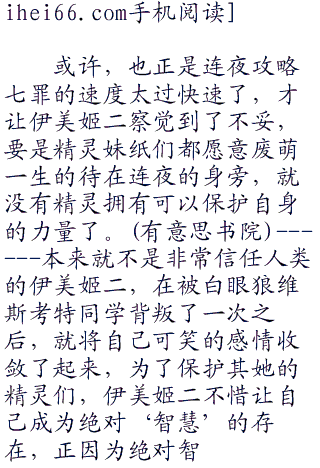 ihei66.com手机阅读]
或许，也正是连夜攻略
七罪的速度太过快速了，才
让伊美姬二察觉到了不妥，
要是精灵妹纸们都愿意废萌
一生的待在连夜的身旁，就
没有精灵拥有可以保护自身
的力量了。(有意思书院)---
---本来就不是非常信任人类
的伊美姬二，在被白眼狼维
斯考特同学背叛了一次之
后，就将自己可笑的感情收
敛了起来，为了保护其她的
精灵们，伊美姬二不惜让自
己成为绝对‘智慧’的存
在，正因为绝对智